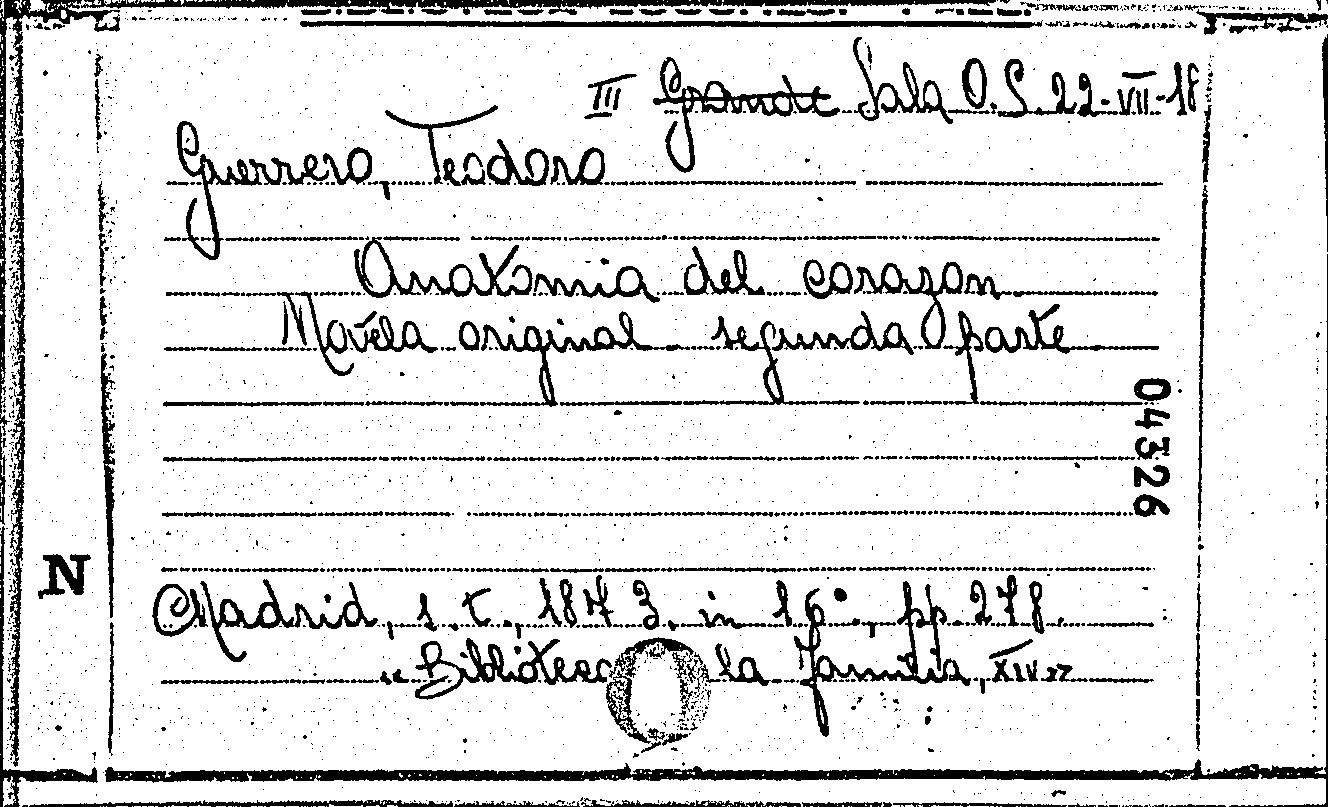 III Grande Sala O.S. 22-VII-18
Guerrero, Teodoro
Anatomia del corazon
Novela original - segunda parte
04326
N
Madrid, s. t., 1873. in 16°., pp. 278.
"Bibliotec la familia, XIV"